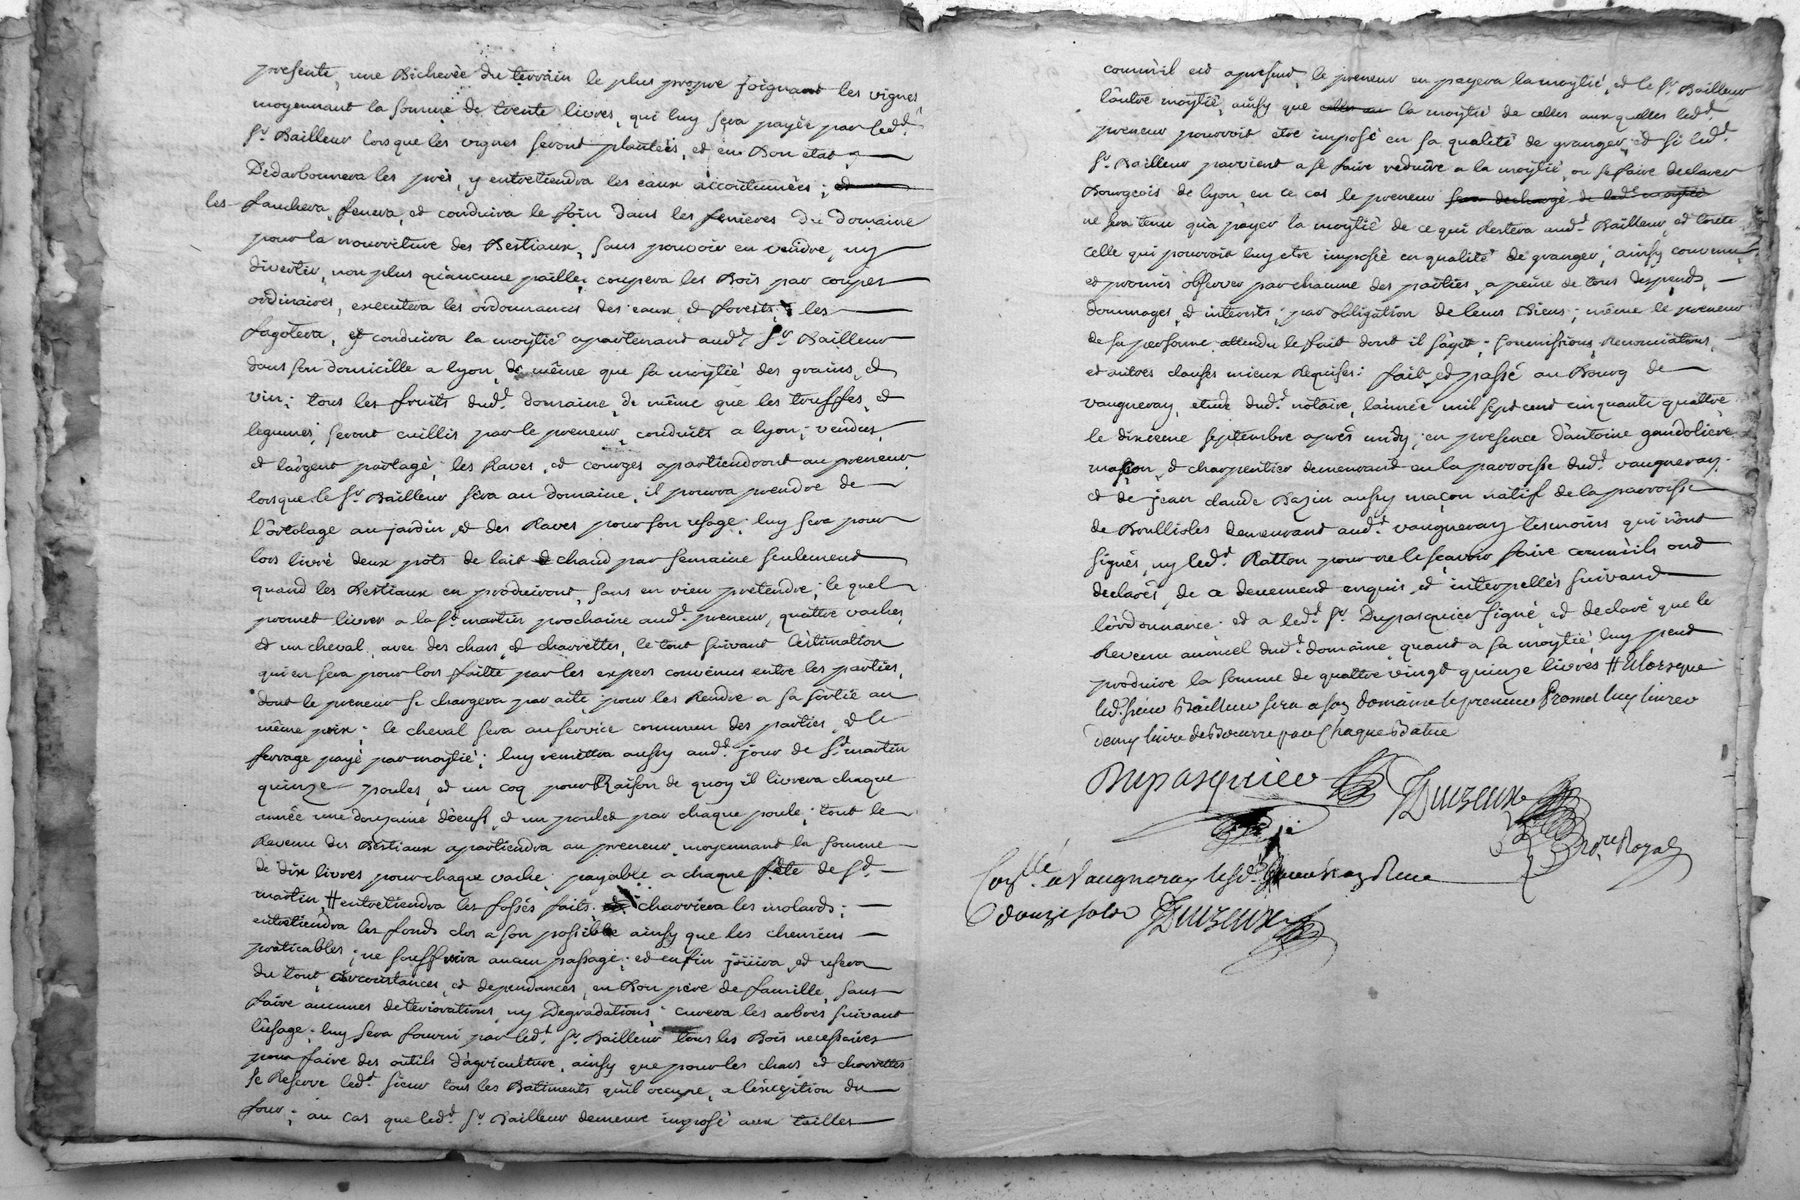 presente, une Bicherée du terrain le plus propre joignant les vignes
moyennant la somme de trente livres, qui luy sera payée par led.t
S.r Bailleur lorsque les vignes seront plantées, et en Bon etat
Dedarbonnera les prés, y entretiendra les eaux accoutumées;
les fauchera, fenera, et conduira le foin dans les fenieres du domaine
pour la nourriture des Bestiaux, sans pouvoir en vendre, ny
divertir, non plus qu'aucune paille, coupera les Bois par coupes
ordinaires, executera les ordonnances des eaux et forests; les
fagotera, et conduira la moytié apartenant aud.t S.r Bailleur
dans son domicille a lyon, de même que sa moytié des grains, et
vin; tous les fruits dud.t domaine, de même que les truffes, et
legumes, seront cuillis par le preneur, conduits a lyon, vendus,
et l'argent partagé; les Raves, et courges apartiendront au preneur,
lorsque le S.r Bailleur sera au domaine, il pourra prendre de
l'ortolage au jardin et des Raves pour son usage; luy sera pour
lors livré deux pots de lait chaud par semaine seulement
quand les Bestiaux en produiront, sans en rien pretendre; le quel
promet livrer a la S.t martin prochaine aud.t preneur, quattre vaches,
et un cheval, avec des chars, et charrettes, le tout suivant l'estimation
qui en sera pour lors faitte par les expers convenus entre les parties,
dont le preneur se chargera par acte, pour les Rendre a sa sortie au
même prix; le cheval sera au service commun des parties, et le
ferrage payé par moytié; luy remettra aussy aud.t jour de S.t martin
quinze poules, et un coq pour Raison de quoy il livrera chaque
année une douzaine d'oeufs, et un poulet par chaque poule; tout le
Revenu des Bestiaux apartiendra au preneur, moyennant la somme
de dix livres pour chaque vache, payable a chaque fête de S.t
martin, # entretiendra les fossés faits, charriera les molards;
entretiendra les fonds clos a son possible ainsy que les chemins
praticables; ne souffrira aucun passage; et enfin joüira, et usera
du tout, circonstances, et dependances, en Bon pere de famille, sans
faire aucunes deteriorations, ny Degradations; curera les arbres suivant
l'usage; luy sera fourni par led.t S.r Bailleur tous les Bois necessaires
pour faire des outils d'agriculture, ainsy que pour les chars, et charrettes
se Reserve led.t sieur tous les Batiments qu'il occupe, a l'exception du
four; au cas que led.t S.r Bailleur demeure imposé aux tailles
comm'il est apresent, le preneur en payera la moytié, et le S.r Bailleur
l'autre moytié, ainsy que la moytié de celles aux quelles led.t
preneur pourroit etre imposé en sa qualité de granger, et si led.t
S.r Bailleur parvient a se faire reduire a la moytié, ou se faire declarer
Bourgeois de lyon, en ce cas le preneur sera dechargé de lad.te moytié
ne sera tenu qu'a payer la moytié de ce qui Restera aud.t Bailleur, et toute
celle qui pourroit luy etre imposée en qualité de granger; ainsy convenu,
et promis observer par chacune des parties, a peine de tous despends,
dommages, et interests, par obligation de leurs Biens; même le preneur
de sa personne, attendu le fait dont il s'agit; sommissions, Renonciations,
et autres clauses mieux Requises: fait, et passé au Bourg de
vaugneray, etude dud.t notaire, l'année mil sept cent cinquante quattre,
le dixieme septembre après midy; en presence d'antoine gandoliere
masson, et charpentier demeurant en la parroisse dud.t vaugneray,
et de jean claude Bazin aussy maçon natif de la parroisse
de Boullioles demeurant aud.t vaugneray tesmoins qui n'ont
signés, ny led.t Ratton pour ne le sçavoir faire comm'ils ont
declarés, de ce deuement enquis, et interpellés suivant
l'ordonnance. et a led.t S.r Dupasquier signé, et declaré que le
Revenu annuel dud.t domaine, quant a sa moytié, luy peut
produire la somme de quattre vingt quinze livres # & lorsque
led. sieur Bailleur sera a son domaine le preneur Promet luy livrer
demy livre de Beurre par Chaque Batue
Dupasquier Duizeux
no.re Royal
Con.llé a Vaugneray le
douze sols Duizeux